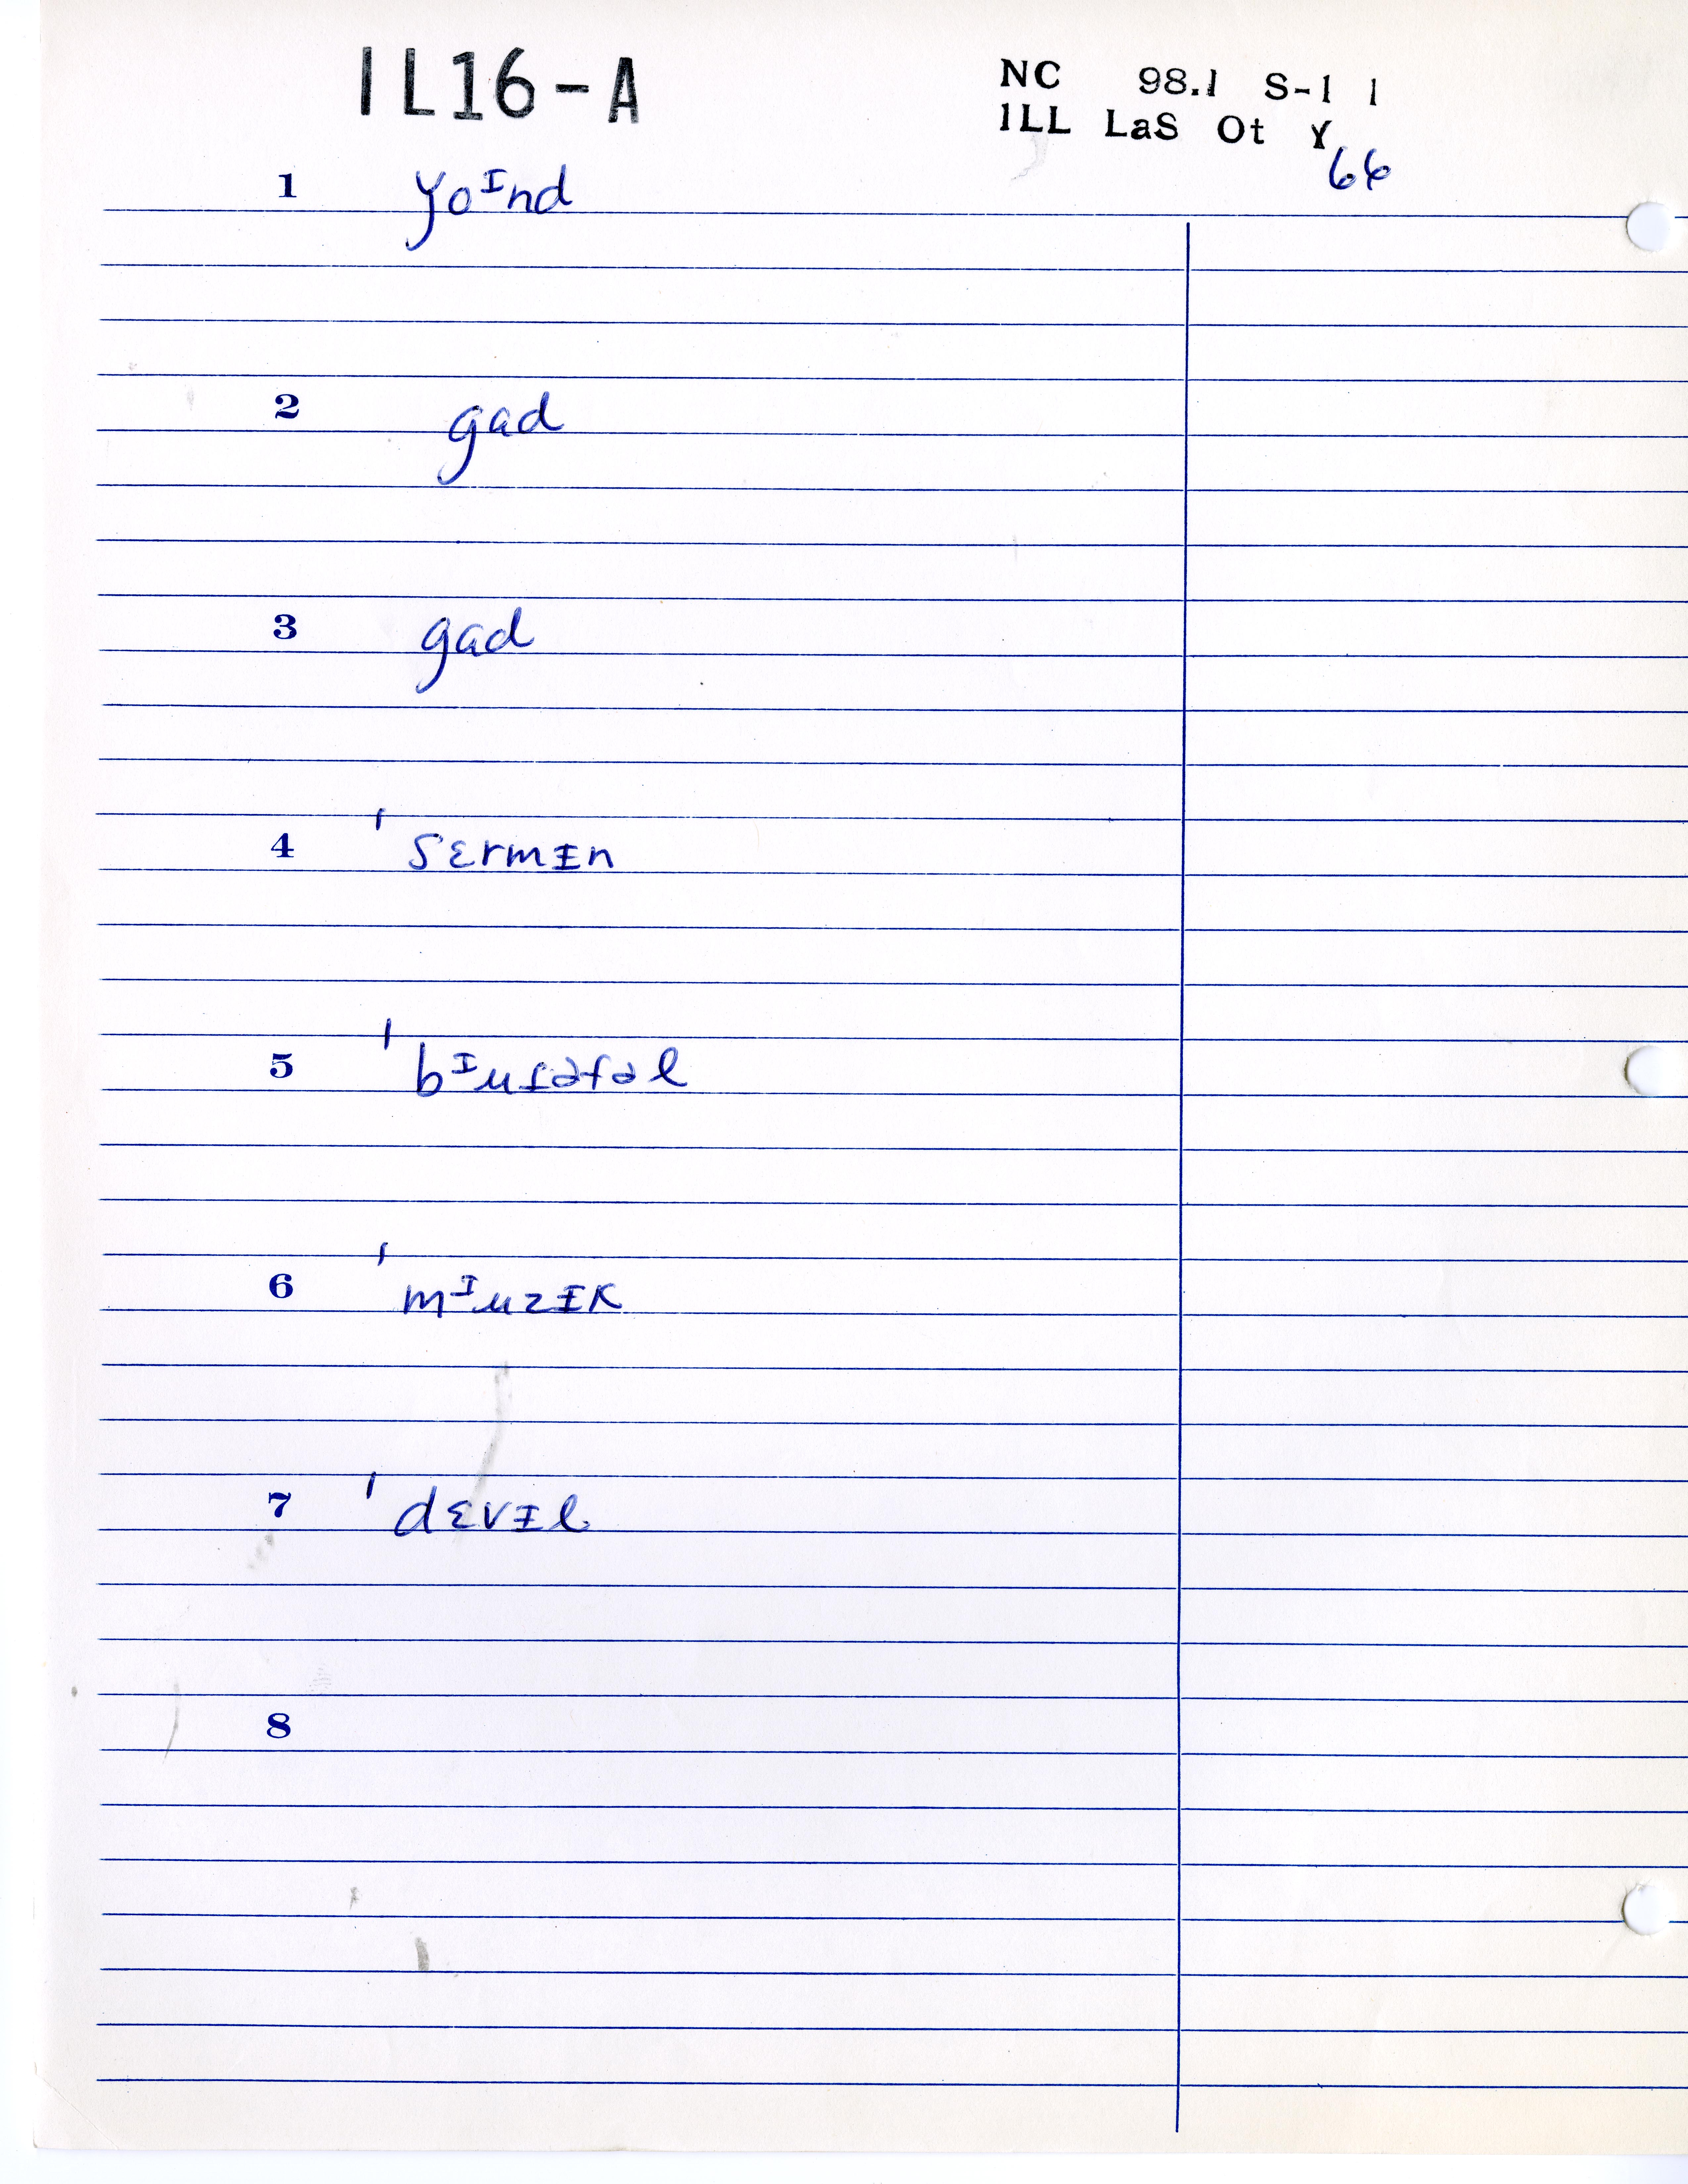 IL16-A
NC 98.1 S-1 1
ILL LaS Ot Y
66
1 ɣoᴵnd
2 gad
3 gad
4 ˈsɛrmɪn
5 ˈbᴵuɾəfəl
6 ˈmᴵuzɪk
7 ˈdɛvɪl
8